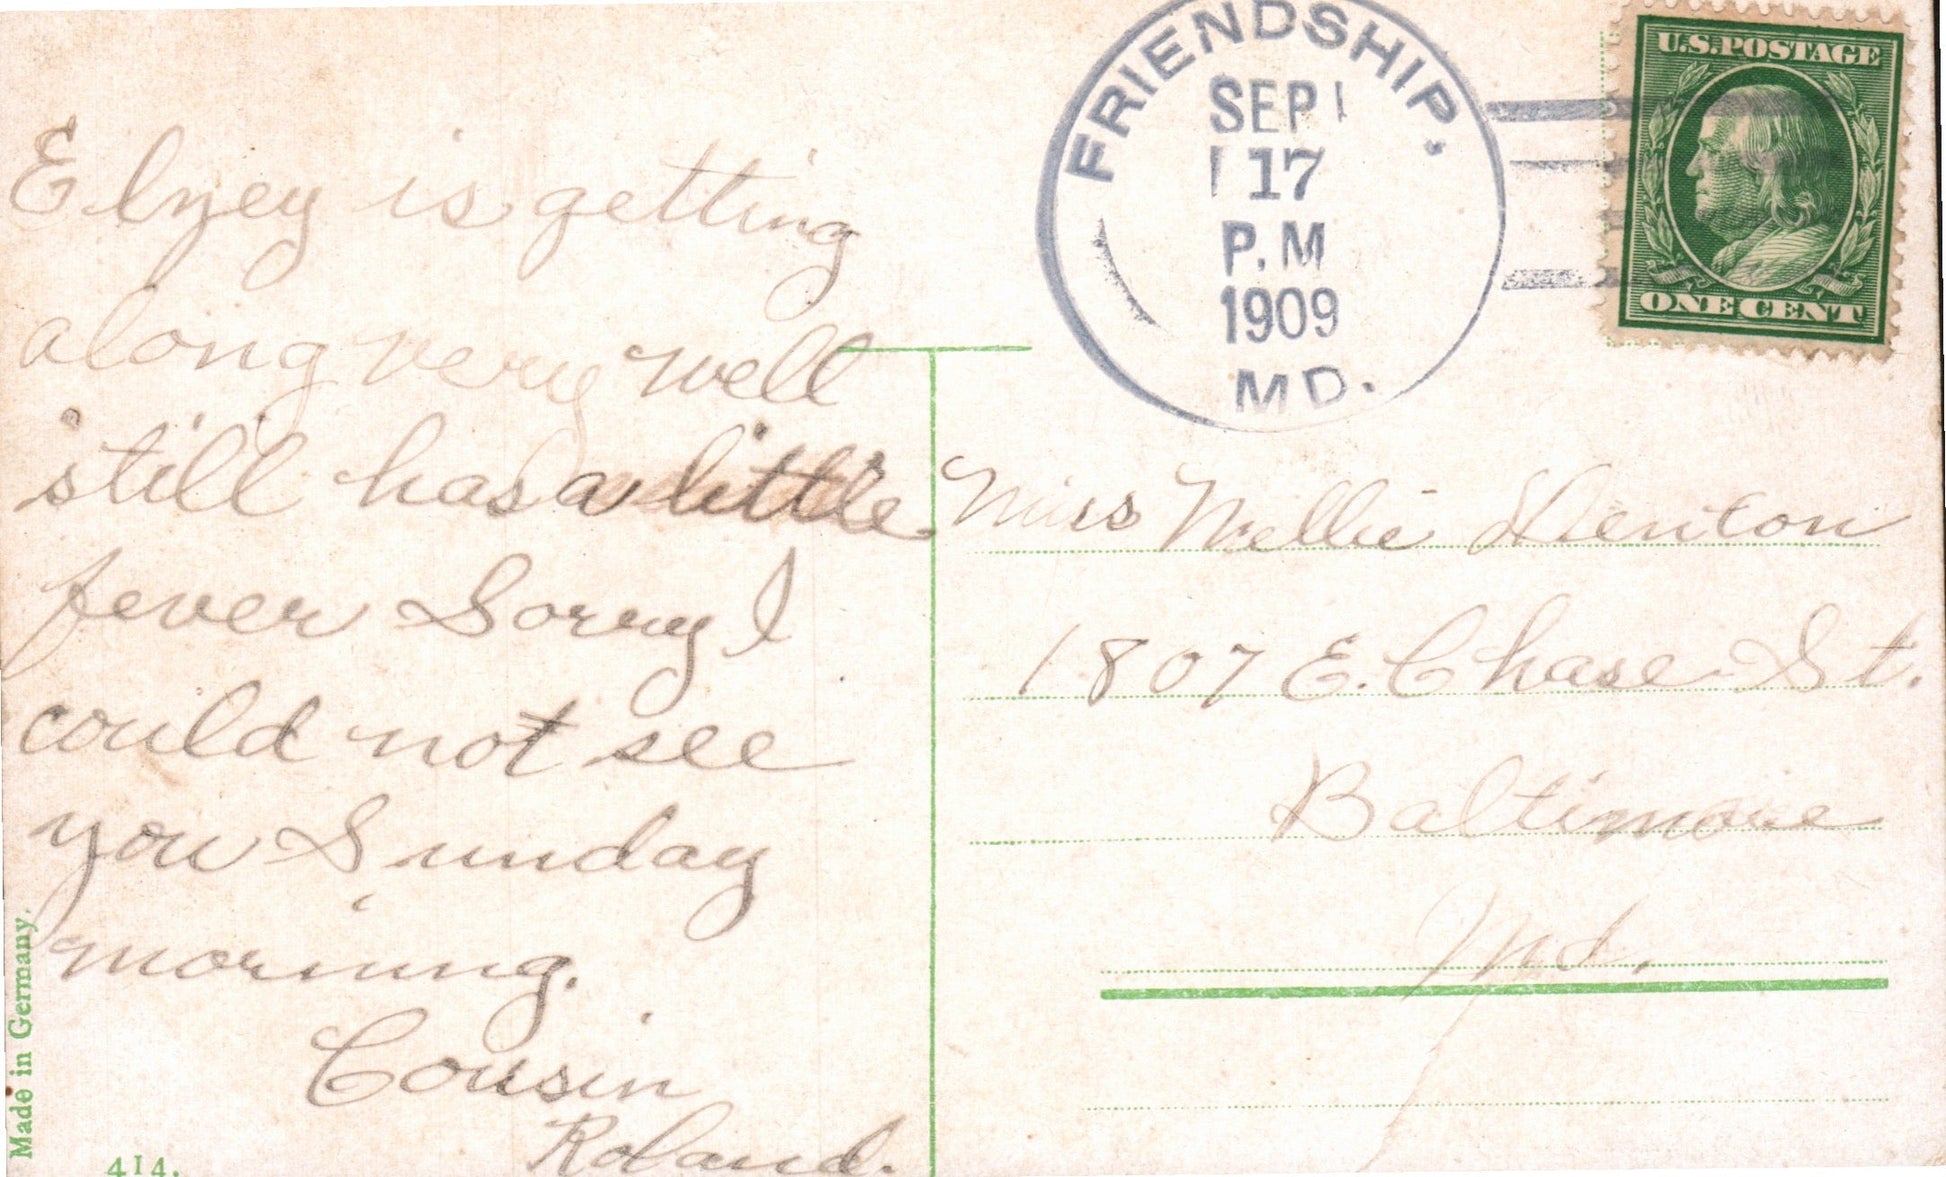 Elzey is getting
along very well
still has a little
fever Sorry I
could not see
you Sunday
morning.
Cousin
Roland.
Made in Germany.
414.
FRIENDSHIP,
SEP
17
P.M
1909
MD.
U.S. POSTAGE
ONE CENT
Miss Nellie Denton
1807 E. Chase St.
Baltimore
Md.